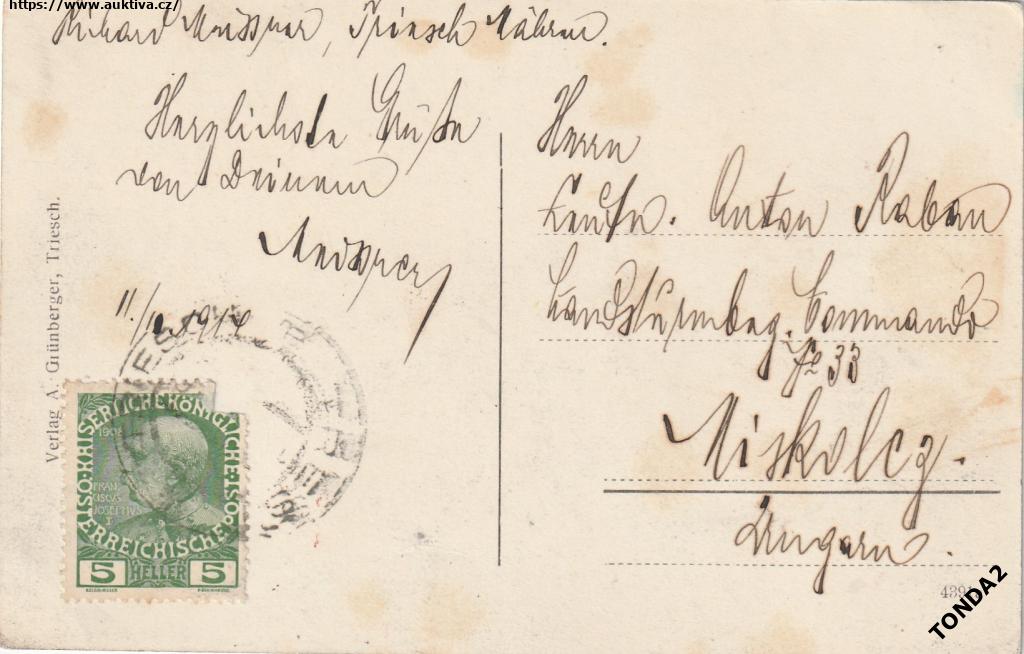 https://www.auktiva.cz/
Richard Meissner, Triesch Mähren.
Herzlichste Grüße
von Deinem
Meissner
11./ 1914
Verlag A. Grünberger, Triesch.
KAISERLICHE KÖNIGLICHE
ÖSTERREICHISCHE POST
1908
FRAN
CISCUS
JOSEPHUS
I
5 HELLER 5
Herrn
Leutn. Anton Raban
Landsturmbez. Commando
No 33
Miskolcz.
Ungarn.
439
TONDA2